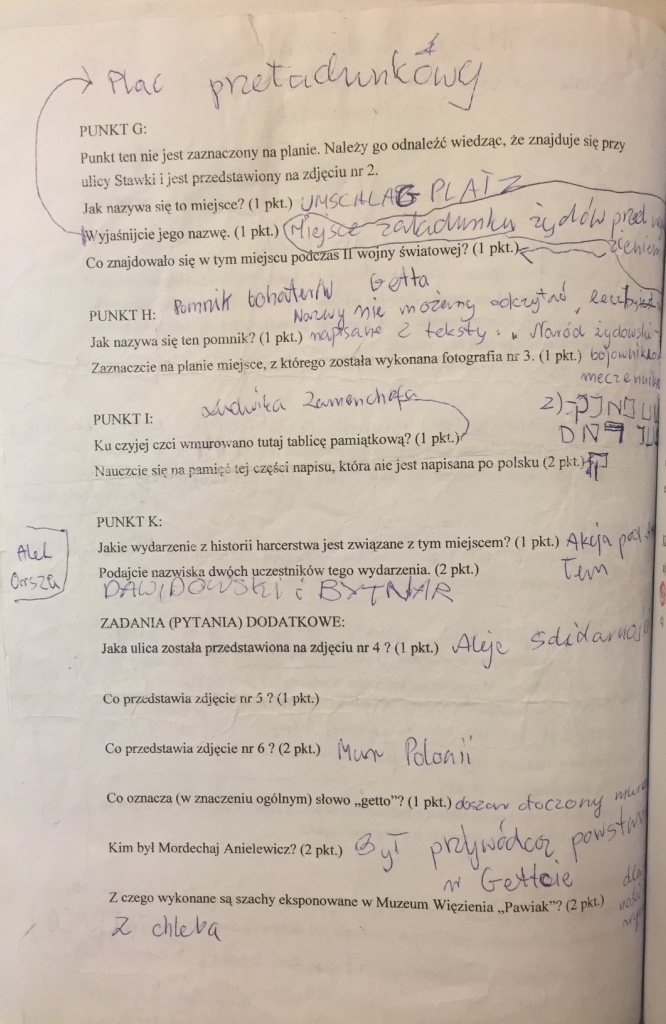 Plac przeładunkowy
PUNKT G:
Punkt ten nie jest zaznaczony na planie. Należy go odnaleźć wiedząc, że znajduje się przy
ulicy Stawki i jest przedstawiony na zdjęciu nr 2.
Jak nazywa się to miejsce? (1 pkt.) UMSCHLAG PLATZ
Wyjaśnijcie jego nazwę. (1 pkt.) Miejsce załadunku żydów przed
Co znajdowało się w tym miejscu podczas II wojny światowej? (1 pkt.)
Pomnik bohaterów Getta
PUNKT H: Nazwy nie możemy odczytać, lecz
Jak nazywa się ten pomnik? (1 pkt.) napisane 2 teksty: „Naród żydowski
Zaznaczcie na planie miejsce, z którego została wykonana fotografia nr 3. (1 pkt.)
Ludwika Zamenhofa
PUNKT I: 2)
Ku czyjej czci wmurowano tutaj tablicę pamiątkową? (1 pkt.)
Nauczcie się na pamięć tej części napisu, która nie jest napisana po polsku (2 pkt.)
PUNKT K:
Jakie wydarzenie z historii harcerstwa jest związane z tym miejscem? (1 pkt.) Akcja pod
Alek
Podajcie nazwiska dwóch uczestników tego wydarzenia. (2 pkt.)
DAWIDOWSKI i BYTNAR
ZADANIA (PYTANIA) DODATKOWE:
Jaka ulica została przedstawiona na zdjęciu nr 4 ? (1 pkt.) Aleje
Co przedstawia zdjęcie nr 5 ? (1 pkt.)
Co przedstawia zdjęcie nr 6 ? (2 pkt.) Mur Polonii
Co oznacza (w znaczeniu ogólnym) słowo „getto"? (1 pkt.) otoczony
Kim był Mordechaj Anielewicz? (2 pkt.) Był przywódcą
w Getcie
Z czego wykonane są szachy eksponowane w Muzeum Więzienia „Pawiak"? (2 pkt.)
Z chleba